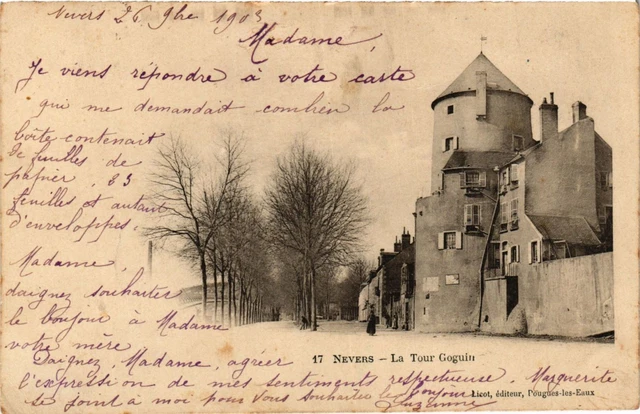 Nevers 26 9bre 1903
Madame,
Je viens répondre à votre carte
qui me demandait combien la
boîte contenait
de feuilles de
papier. 25
feuilles et autant
d'enveloppes.
Madame,
daignez souhaiter
le bonjour à Madame
votre mère.
17 NEVERS - La Tour Goguin
Daignez, Madame, agréer
l'expression de mes sentiments respectueuse. Marguerite
Lizot, éditeur, Pougues-les-Eaux
se joint à moi pour vous souhaiter le bonjour
Suzanne